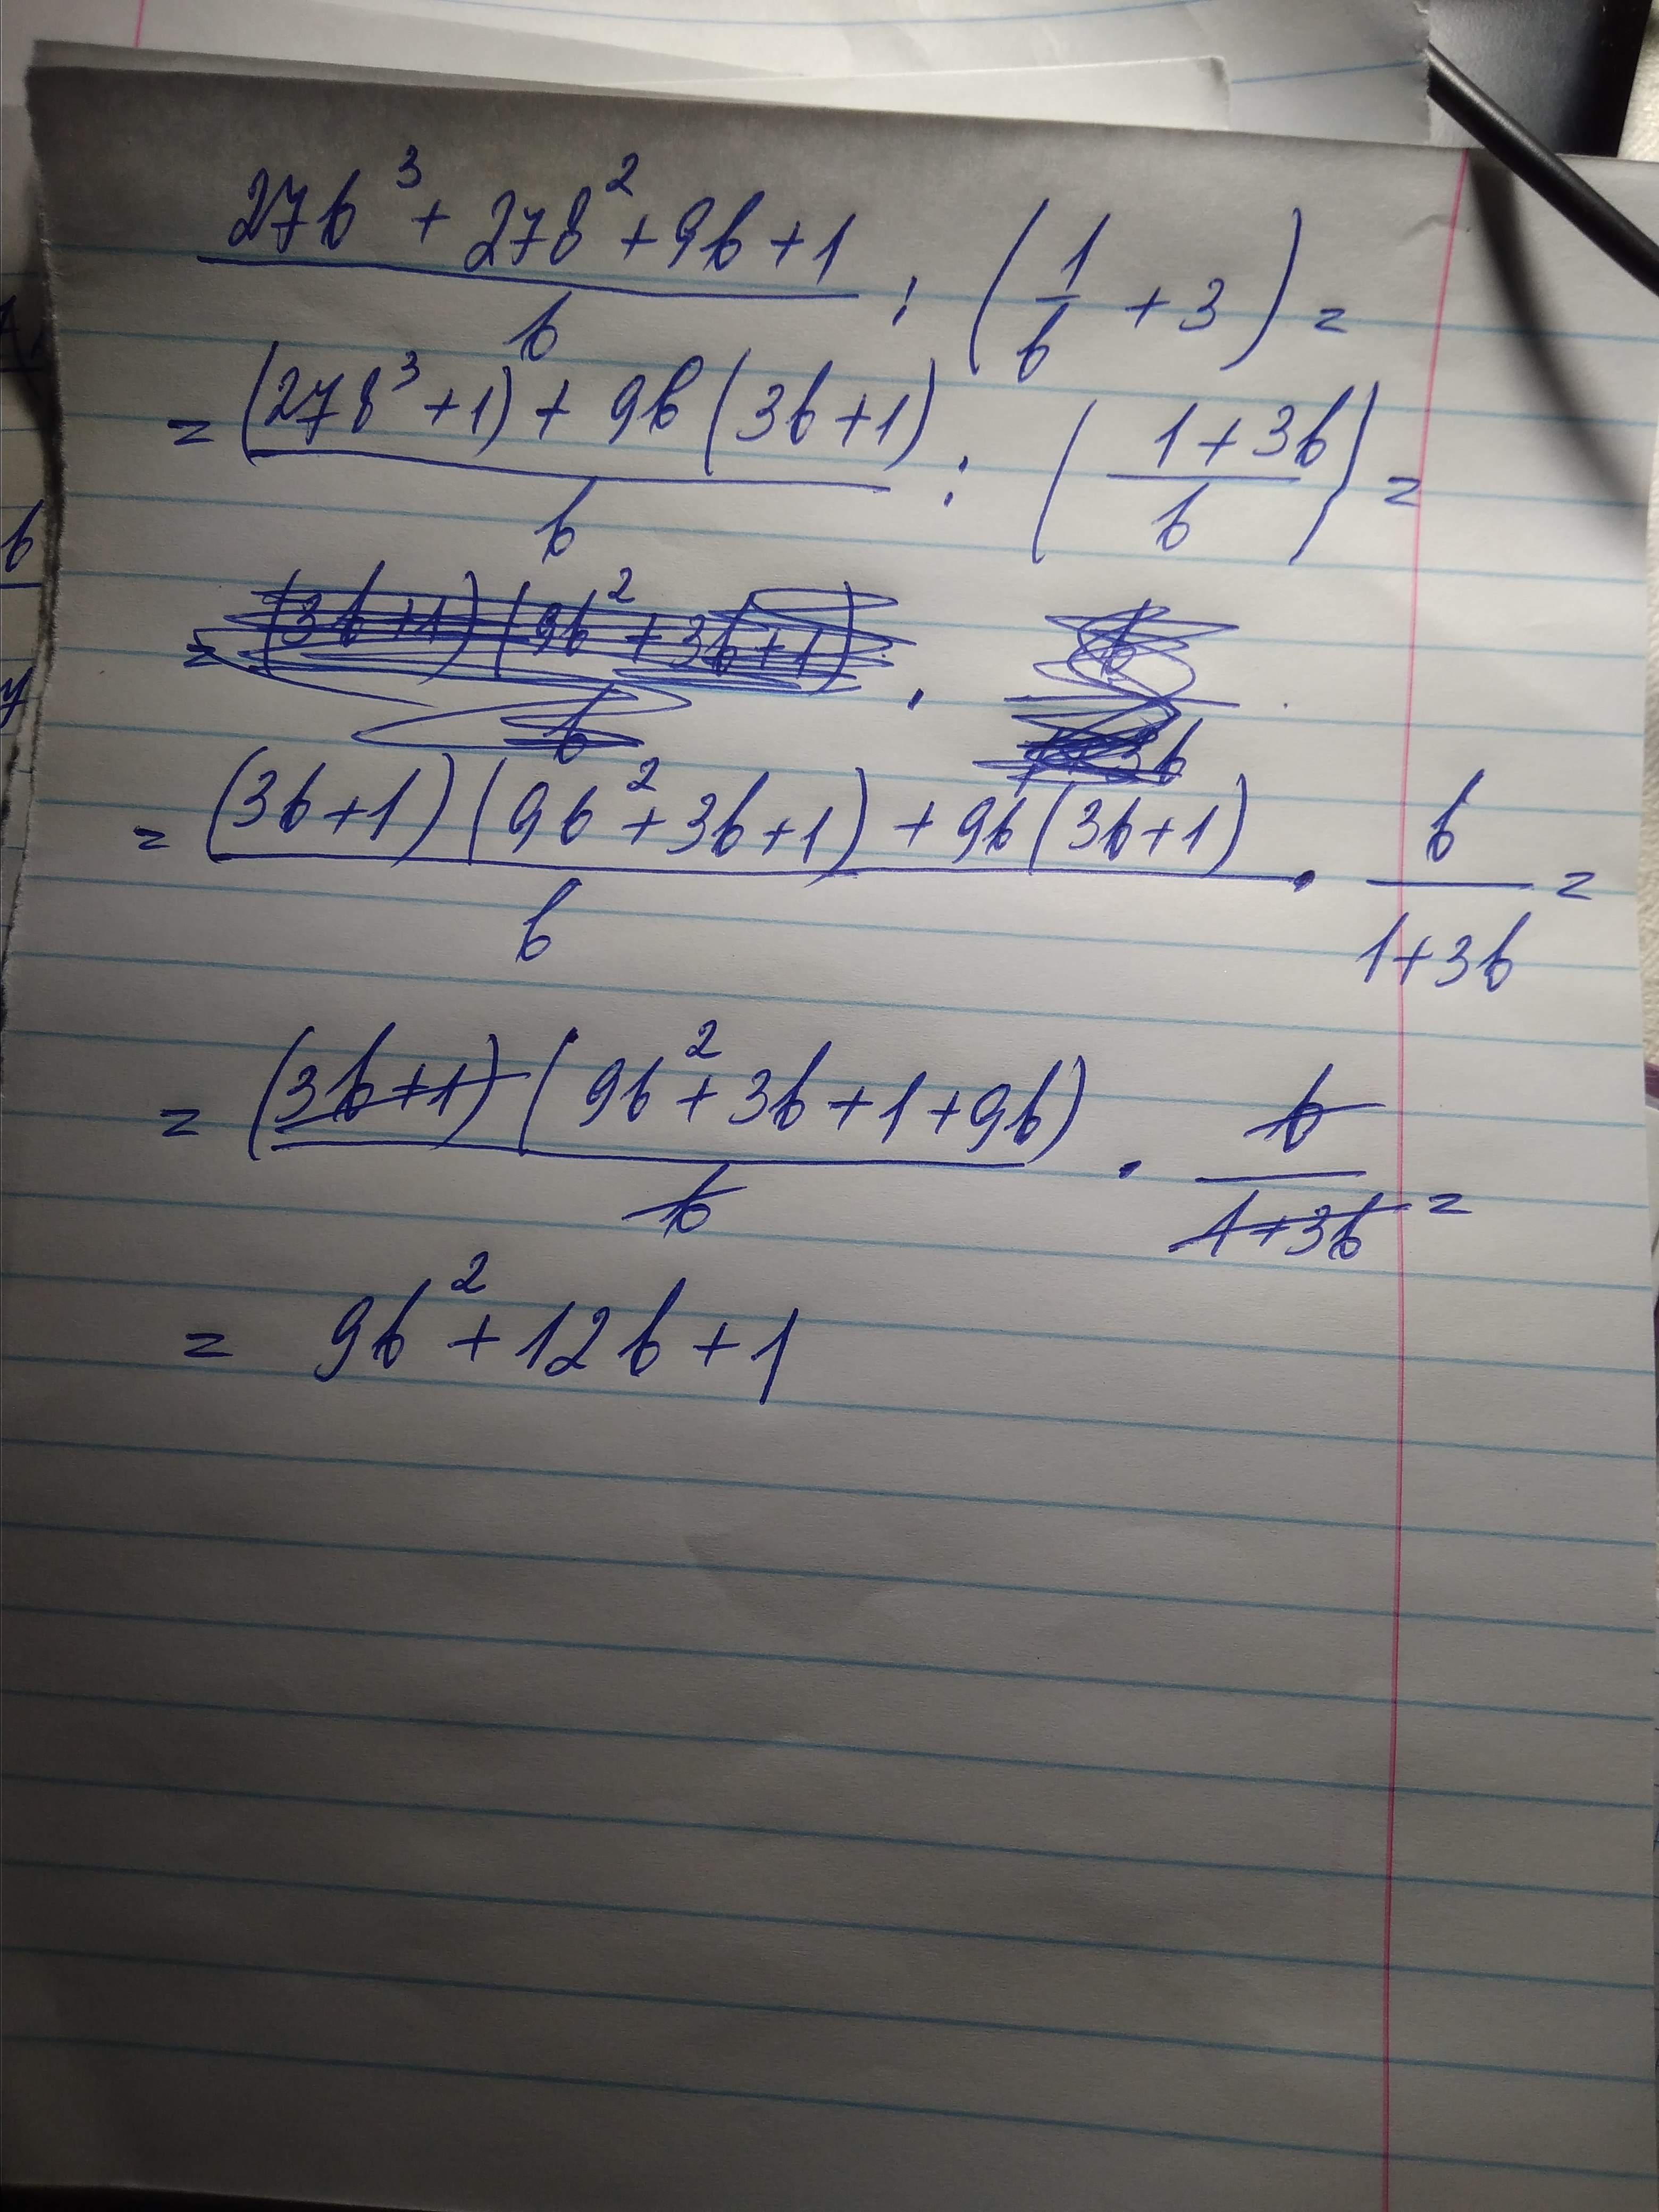 (27b³ + 27b² + 9b + 1)/b : (1/b + 3) =
= ((27b³ + 1) + 9b(3b + 1))/b : ((1 + 3b)/b) =
= ((3b+1)(9b² + 3b + 1))/b ·
= ((3b+1)(9b² + 3b + 1) + 9b(3b+1))/b · b/(1+3b) =
= ((3b+1)(9b² + 3b + 1 + 9b))/b · b/(1+3b) =
= 9b² + 12b + 1